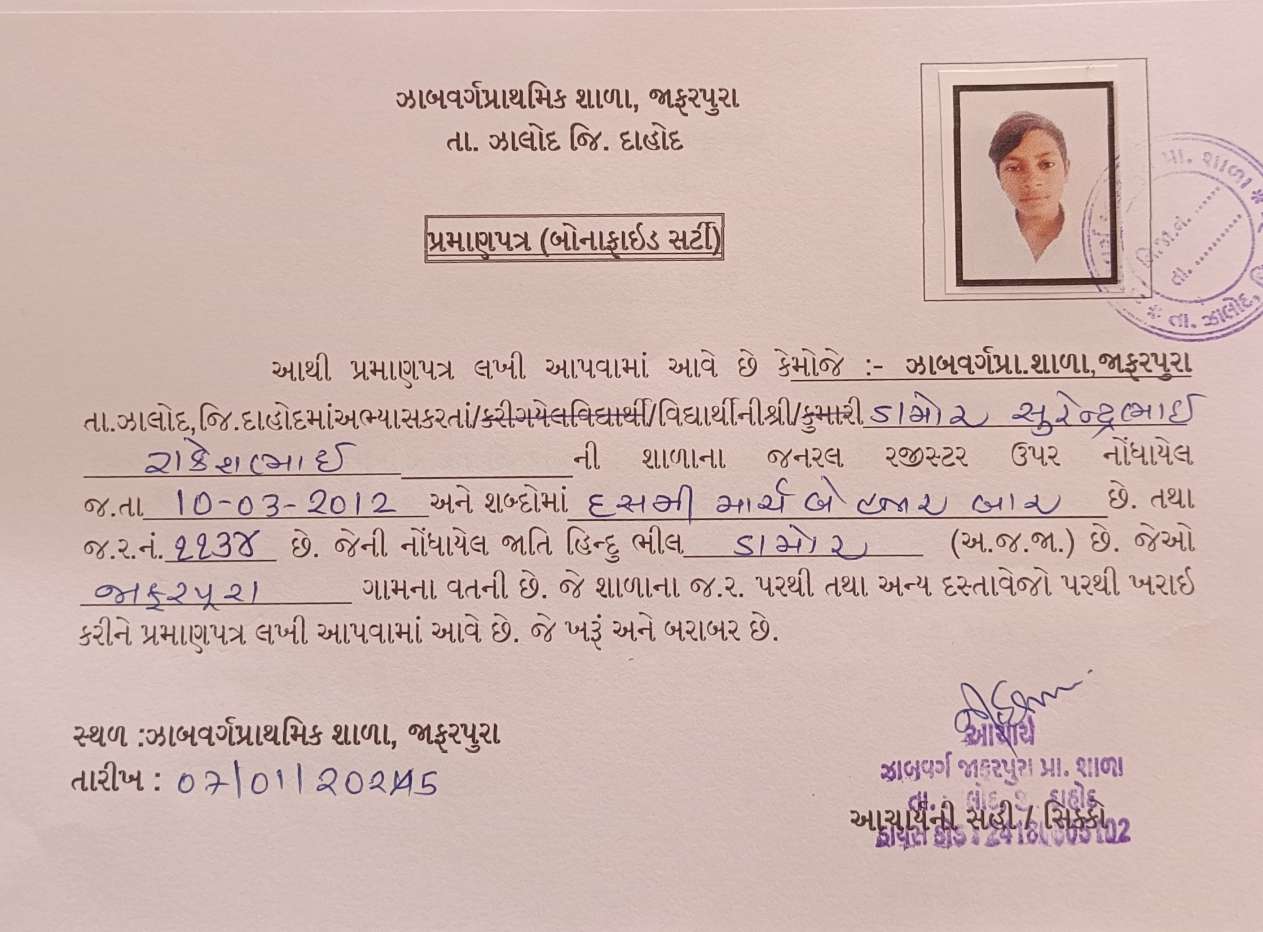 ઝાબવર્ગપ્રાથમિક શાળા, જાફરપુરા
તા. ઝાલોદ જિ. દાહોદ
પ્રમાણપત્ર (બોનાફાઈડ સર્ટી)
પ્રા. શાળા *
વિ.જા.નં. ........
તા. ............
* તા. ઝાલોદ,
આથી પ્રમાણપત્ર લખી આપવામાં આવે છે કેમોજે :- ઝાબવર્ગપ્રા.શાળા,જાફરપુરા
તા.ઝાલોદ,જિ.દાહોદમાંઅભ્યાસકરતાં/કરીગયેલવિદ્યાર્થી/વિદ્યાર્થીનીશ્રી/કુમારી ડામોર સુરેન્દ્રભાઈ
રાકેશભાઈ ની શાળાના જનરલ રજીસ્ટર ઉપર નોંધાયેલ
જ.તા 10-03-2012 અને શબ્દોમાં દસમી માર્ચ બે હજાર બાર છે. તથા
જ.ર.નં. ૨૨૩૪ છે. જેની નોંધાયેલ જાતિ હિન્દુ ભીલ ડામોર (અ.જ.જા.) છે. જેઓ
જાફરપૂરા ગામના વતની છે. જે શાળાના જ.ર. પરથી તથા અન્ય દસ્તાવેજો પરથી ખરાઈ
કરીને પ્રમાણપત્ર લખી આપવામાં આવે છે. જે ખરૂં અને બરાબર છે.
સ્થળ :ઝાબવર્ગપ્રાથમિક શાળા, જાફરપુરા
તારીખ : ૦૭/01/2025
આચાર્ય
ઝાબવર્ગ જાફરપુરા પ્રા. શાળા
દાહોદ
આચાર્યની સહી / સિક્કો